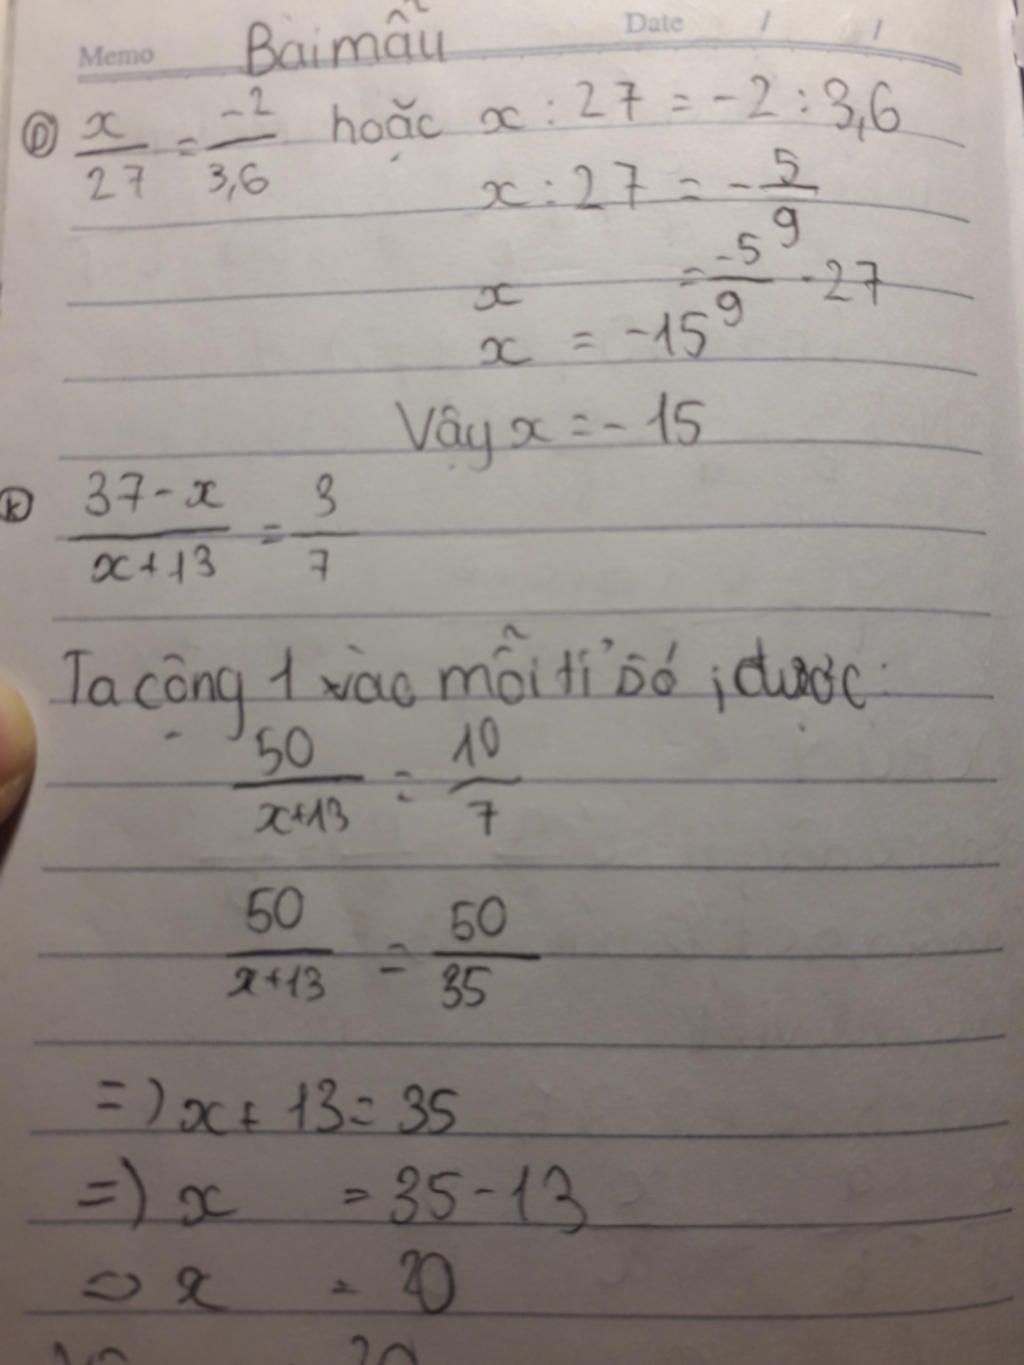 Memo Bài mẫu Date / /
Ⓓ x/27 = -2/3,6 hoặc x : 27 = -2 : 3,6
x : 27 = -5/9
x = -5/9 . 27
x = -15
Vậy x = -15
Ⓚ 37-x/x+13 = 3/7
Ta cộng 1 vào mỗi tỉ số, được:
50/x+13 = 10/7
50/x+13 = 50/35
=) x + 13 = 35
=) x = 35 - 13
=> x = 20